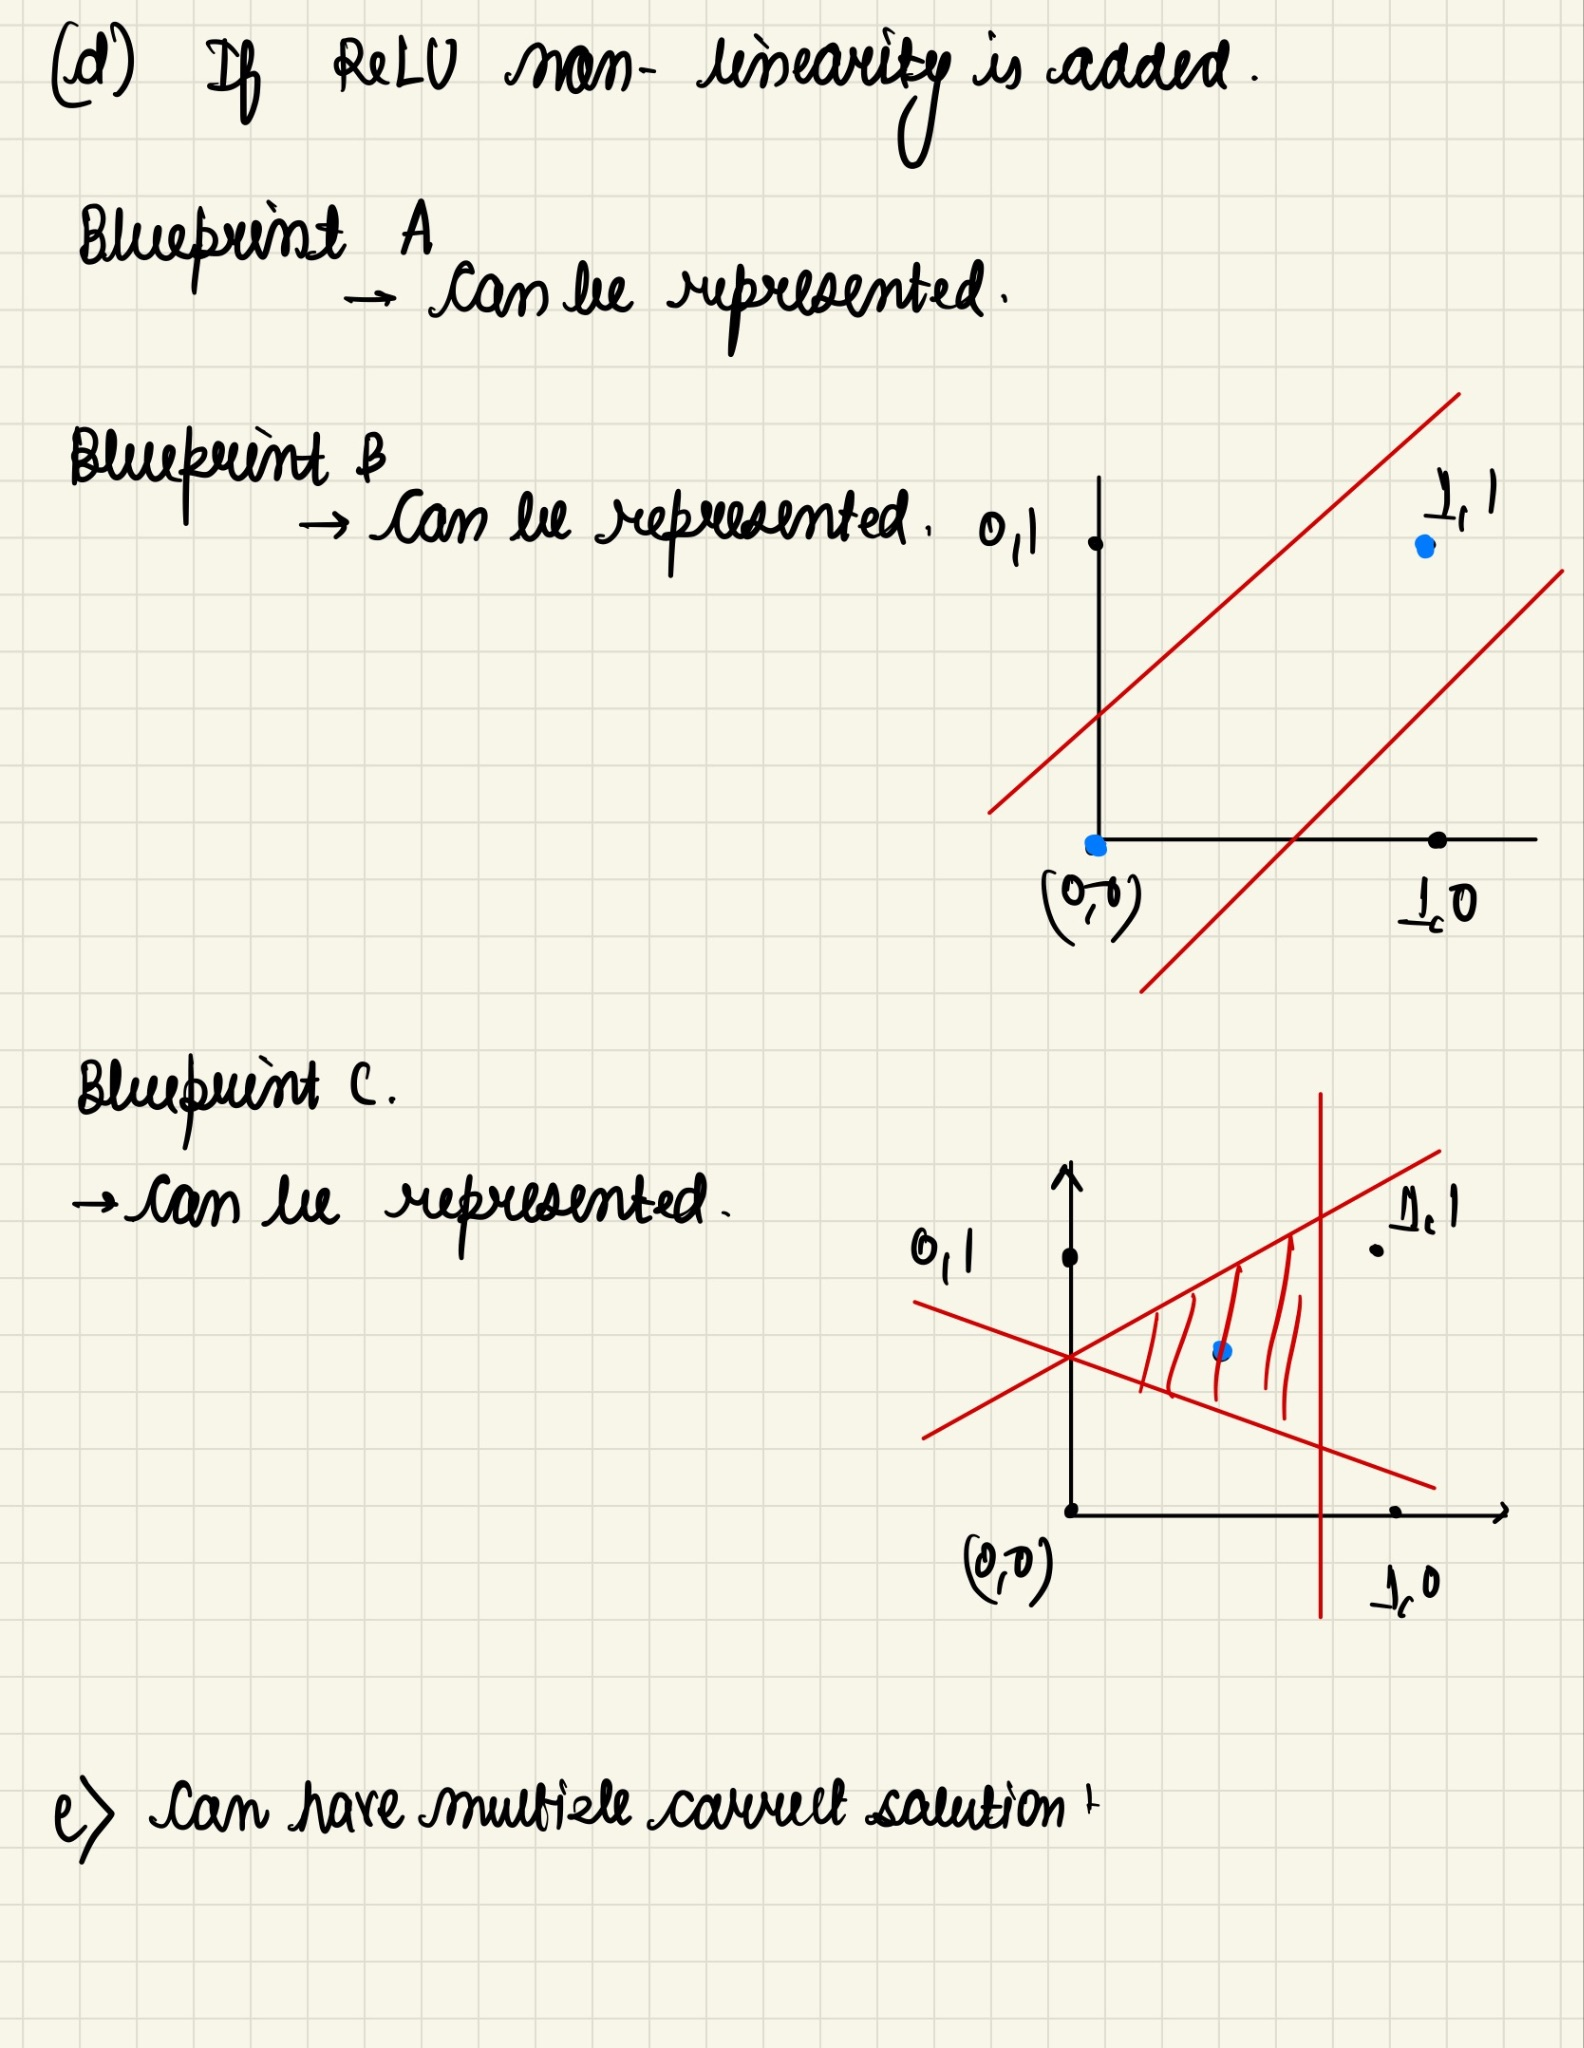 (d) If ReLU non-linearity is added.
Blueprint A
→ Can be represented.
Blueprint B
→ Can be represented.
0,1
1,1
(0,0)
1,0
Blueprint C.
→ Can be represented.
0,1
1,1
(0,0)
1,0
e) Can have multiple correct solution